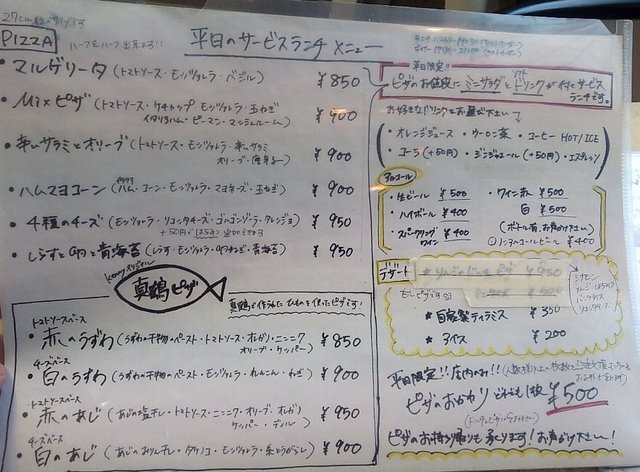 PIZZA
ハーフ&ハーフ出来ます!!
平日のサービスランチメニュー
・マルゲリータ (トマトソース・モッツァレラ・バジル) ¥850
・Mixピザ (トマトソース・ケチャップ・モッツァレラ・玉ねぎ
イタリアハム・ピーマン・マッシュルーム) ¥900
・辛いサラミとオリーブ (トマトソース・モッツァレラ・辛いサラミ
オリーブ・唐辛子) ¥900
・ハムマヨコーン (ハム・コーン・モッツァレラ・マヨネーズ・玉ねぎ) ¥900
・4種のチーズ (モッツァレラ・リコッタチーズ・ゴルゴンゾーラ・タレッジョ) ¥950
+50円ではちみつ
・しらすと卵と青海苔 (しらす・モッツァレラ・卵・玉ねぎ・青海苔) ¥950
真鶴ピザ
真鶴で作られたひものを使ったピザです!
トマトソースベース
・赤のうずわ (うずわの干物のペースト・トマトソース・オレガノ・ニンニク
オリーブ・ケッパー) ¥850
チーズベース
・白のうずわ (うずわの干物のペースト・モッツァレラ・れんこん・ねぎ) ¥900
トマトソースベース
・赤のあじ (あじの塩干し・トマトソース・ニンニク・オリーブ・オレガノ
ケッパー・ディル) ¥950
チーズベース
・白のあじ (あじのみりん干し・タケノコ・モッツァレラ・糸とうがらし) ¥900
平日限定!!
ピザのお値段にミニサラダとソフトドリンクが付いたサービス
ランチです。
お好きなドリンクをお選び下さい
・オレンジジュース ・ウーロン茶 ・コーヒー HOT/ICE
・コーラ(+50円) ・ジンジャエール(+50円)・エスプレッソ
アルコール
・生ビール ¥500 ・ワイン赤 ¥500
・ハイボール ¥400 白 ¥500
・スパークリング
ワイン (ボトル有、お声がけ下さい)
○ノンアルコールビール ¥400
デザート
★自家製ティラミス ¥350
★アイス ¥200
平日限定!! 店内のみ!!
ピザのおかわり どれでも1枚 ¥500
ピザのお持ち帰りも承ります! お声がけ下さい!